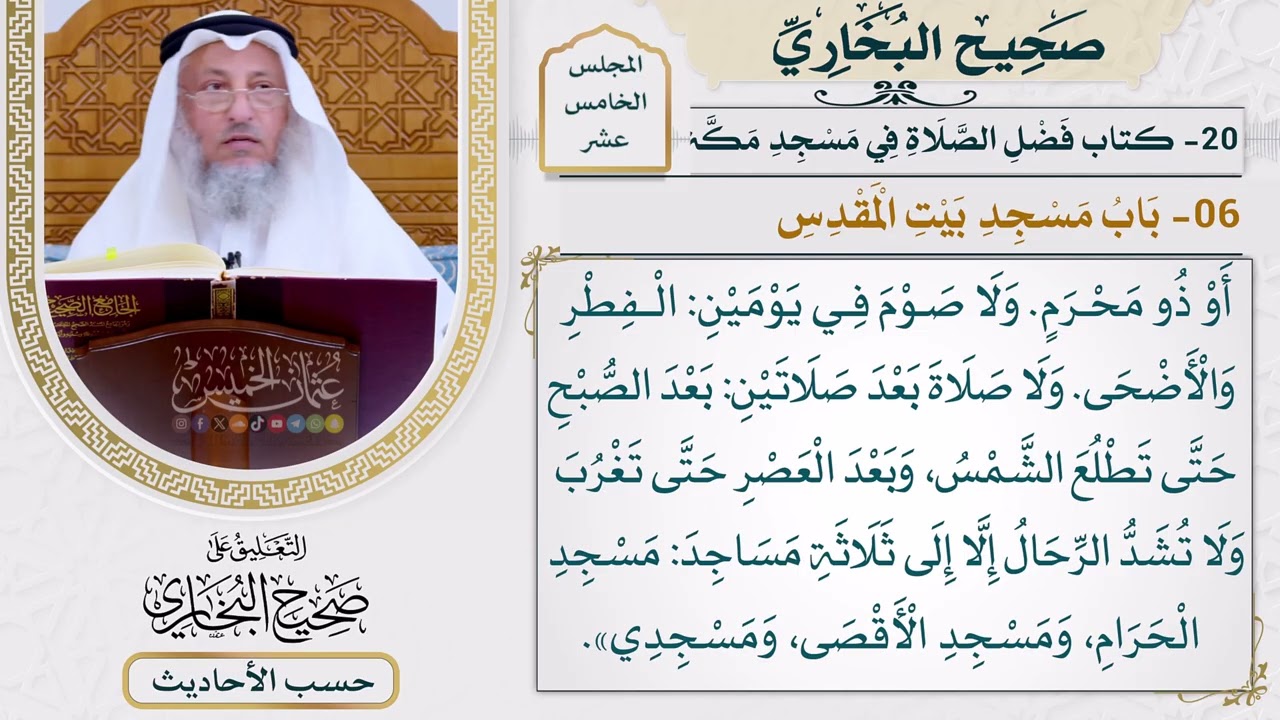 صَحِيح البُخَارِيِّ
المجلس
الخامس
عشر
20- كتاب فَضْلِ الصَّلَاةِ فِي مَسْجِدِ مَكَّةَ
06- بَابُ مَسْجِدِ بَيْتِ الْمَقْدِسِ
أَوْ ذُو مَحْرَمٍ. وَلَا صَوْمَ فِي يَوْمَيْنِ: الْفِطْرِ
وَالْأَضْحَى. وَلَا صَلَاةَ بَعْدَ صَلَاتَيْنِ: بَعْدَ الصُّبْحِ
حَتَّى تَطْلُعَ الشَّمْسُ، وَبَعْدَ الْعَصْرِ حَتَّى تَغْرُبَ
وَلَا تُشَدُّ الرِّحَالُ إِلَّا إِلَى ثَلَاثَةِ مَسَاجِدَ: مَسْجِدِ
الْحَرَامِ، وَمَسْجِدِ الْأَقْصَى، وَمَسْجِدِي».
الجامع الصحيح
عثمان الخميس
التَّعْلِيقُ عَلَى
صَحِيح البُخَارِي
حسب الأحاديث